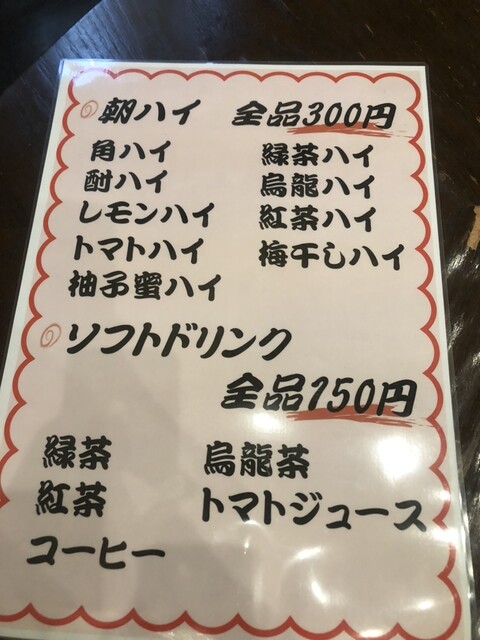 朝ハイ 全品300円
角ハイ 緑茶ハイ
酎ハイ 烏龍ハイ
レモンハイ 紅茶ハイ
トマトハイ 梅干しハイ
柚子蜜ハイ
ソフトドリンク
全品150円
緑茶 烏龍茶
紅茶 トマトジュース
コーヒー